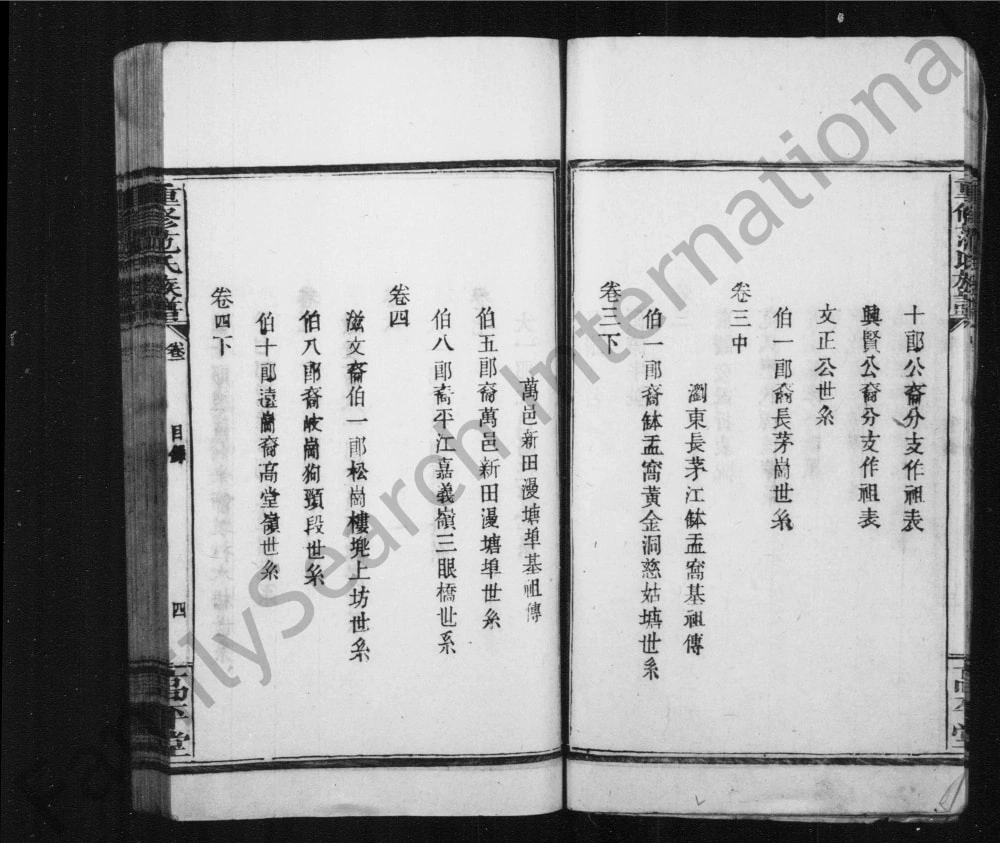 十郎公裔分支作祖表
興賢公裔分支作祖表
文正公世系
伯一郎裔長茅崗世系
卷三中
瀏東長茅江缽盂窩基祖傳
伯一郎裔缽盂窩黃金洞慈姑塘世系
卷三下
萬邑新田漫塘埠基祖傳
伯五郎裔萬邑新田漫塘埠世系
伯八郎裔平江嘉義嶺三眼橋世系
卷四
滋文裔伯一郎松崗樓堍上坊世系
伯八郎裔岐崗狗頸段世系
伯十郎遠崗裔高堂嶺世系
卷四下
重修范氏族譜
卷一
目錄
四
高平堂
FamilySearch International